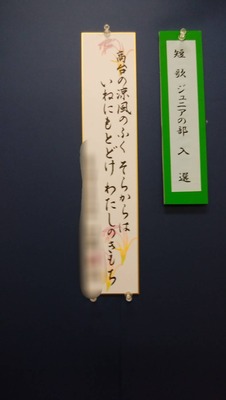 短歌ジュニアの部 入選
高台の涼風のふく そらからは
いねにもとどけ わたしのきもち